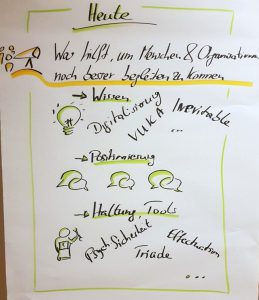 Heute
Was hilft, um Menschen & Organisationen
noch besser begleiten zu können
→ Wissen
Digitalisierung
VUKA
Inevitable
...
→ Positionierung
→ Haltung Tools
Psych Sicherheit
Effectuation
Triade
...